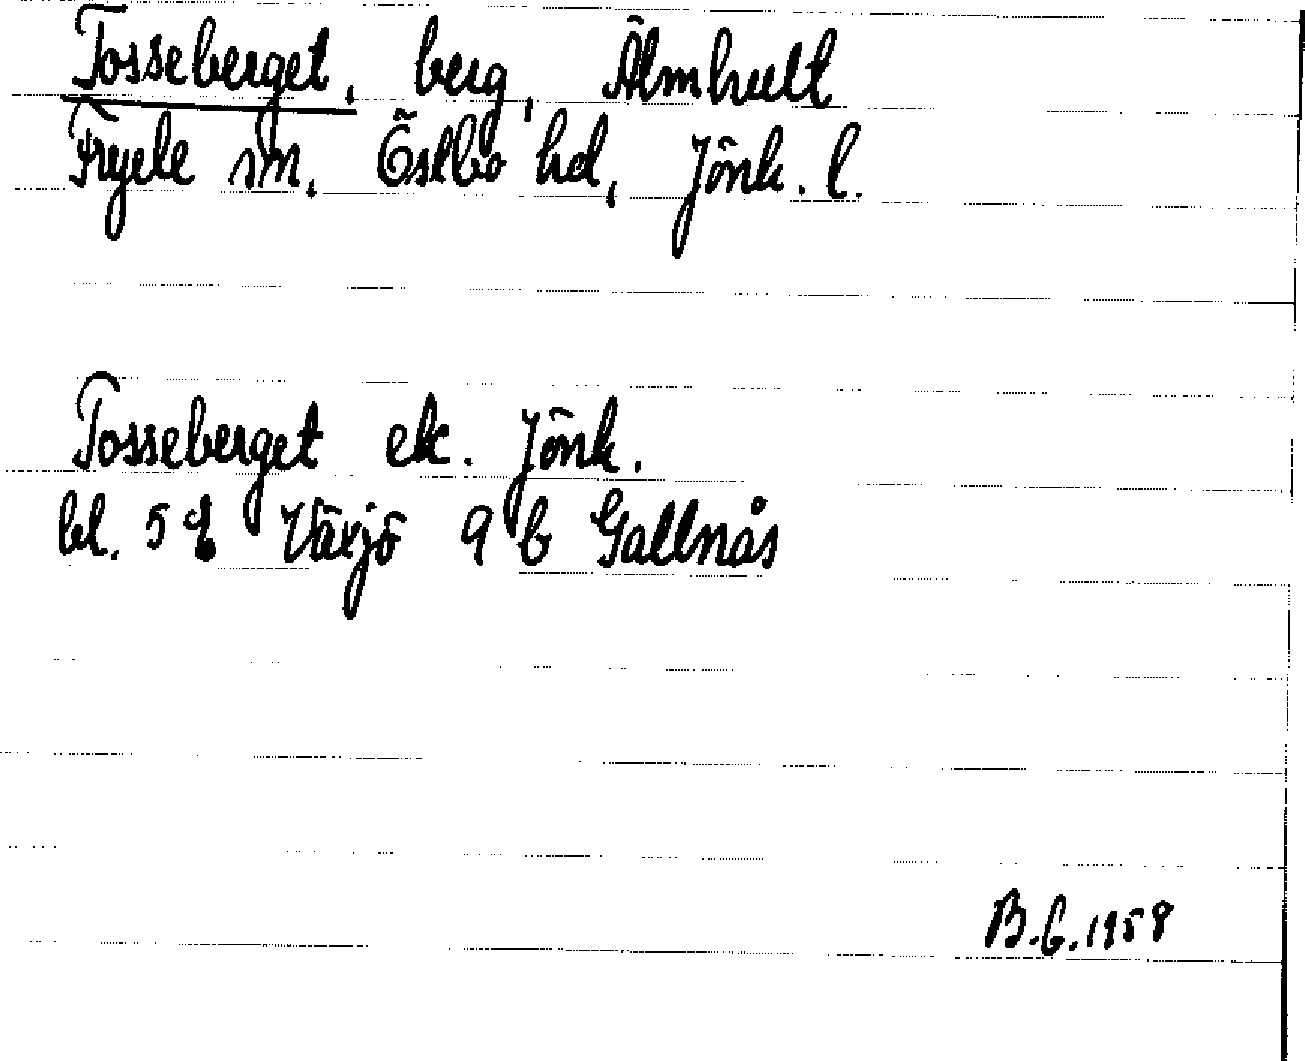 Tosseberget, berg, Älmhult
Fryele sn, Östbo hd, Jönk. l.
Tosseberget ek. Jönk.
bl. 5 Växjö 9 b Gallnås
B.G. 1958